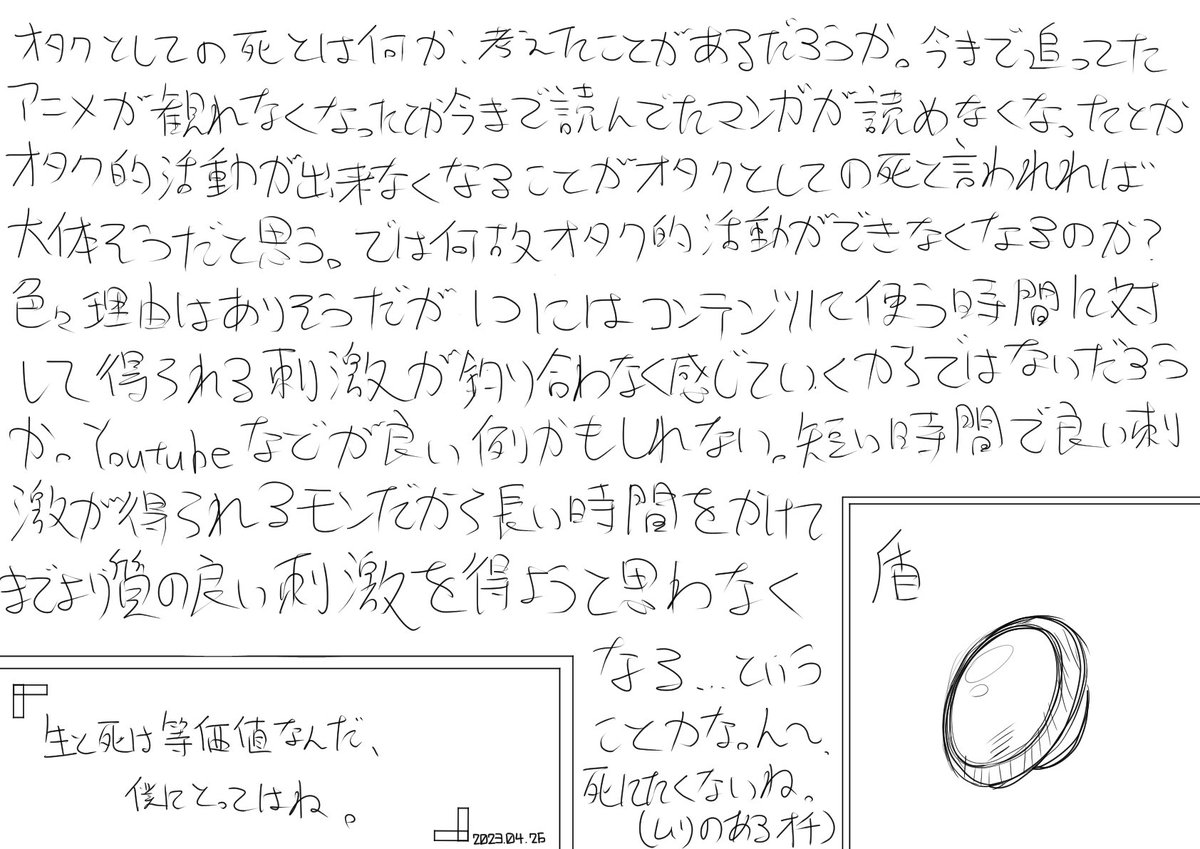 オタクとしての死とは何か、考えたことがあるだろうか。今まで追ってた
アニメが観れなくなったとか今まで読んでたマンガが読めなくなったとか
オタク的活動が出来なくなることがオタクとしての死と言われれば
大体そうだと思う。では何故オタク的活動ができなくなるのか?
色々理由はありそうだが1つにはコンテンツに使う時間に対
して得られる刺激が釣り合わなく感じていくからではないだろう
か。Youtubeなどが良い例かもしれない。短い時間で良い刺
激が得られるモンだから長い時間をかけて
までより質の良い刺激を得ようと思わなく
なる...という
ことかな。んへ、
死にたくないね。
(ムリのあるオチ)
盾
『
生と死は等価値なんだ、
僕にとってはね。
』
2023.04.26